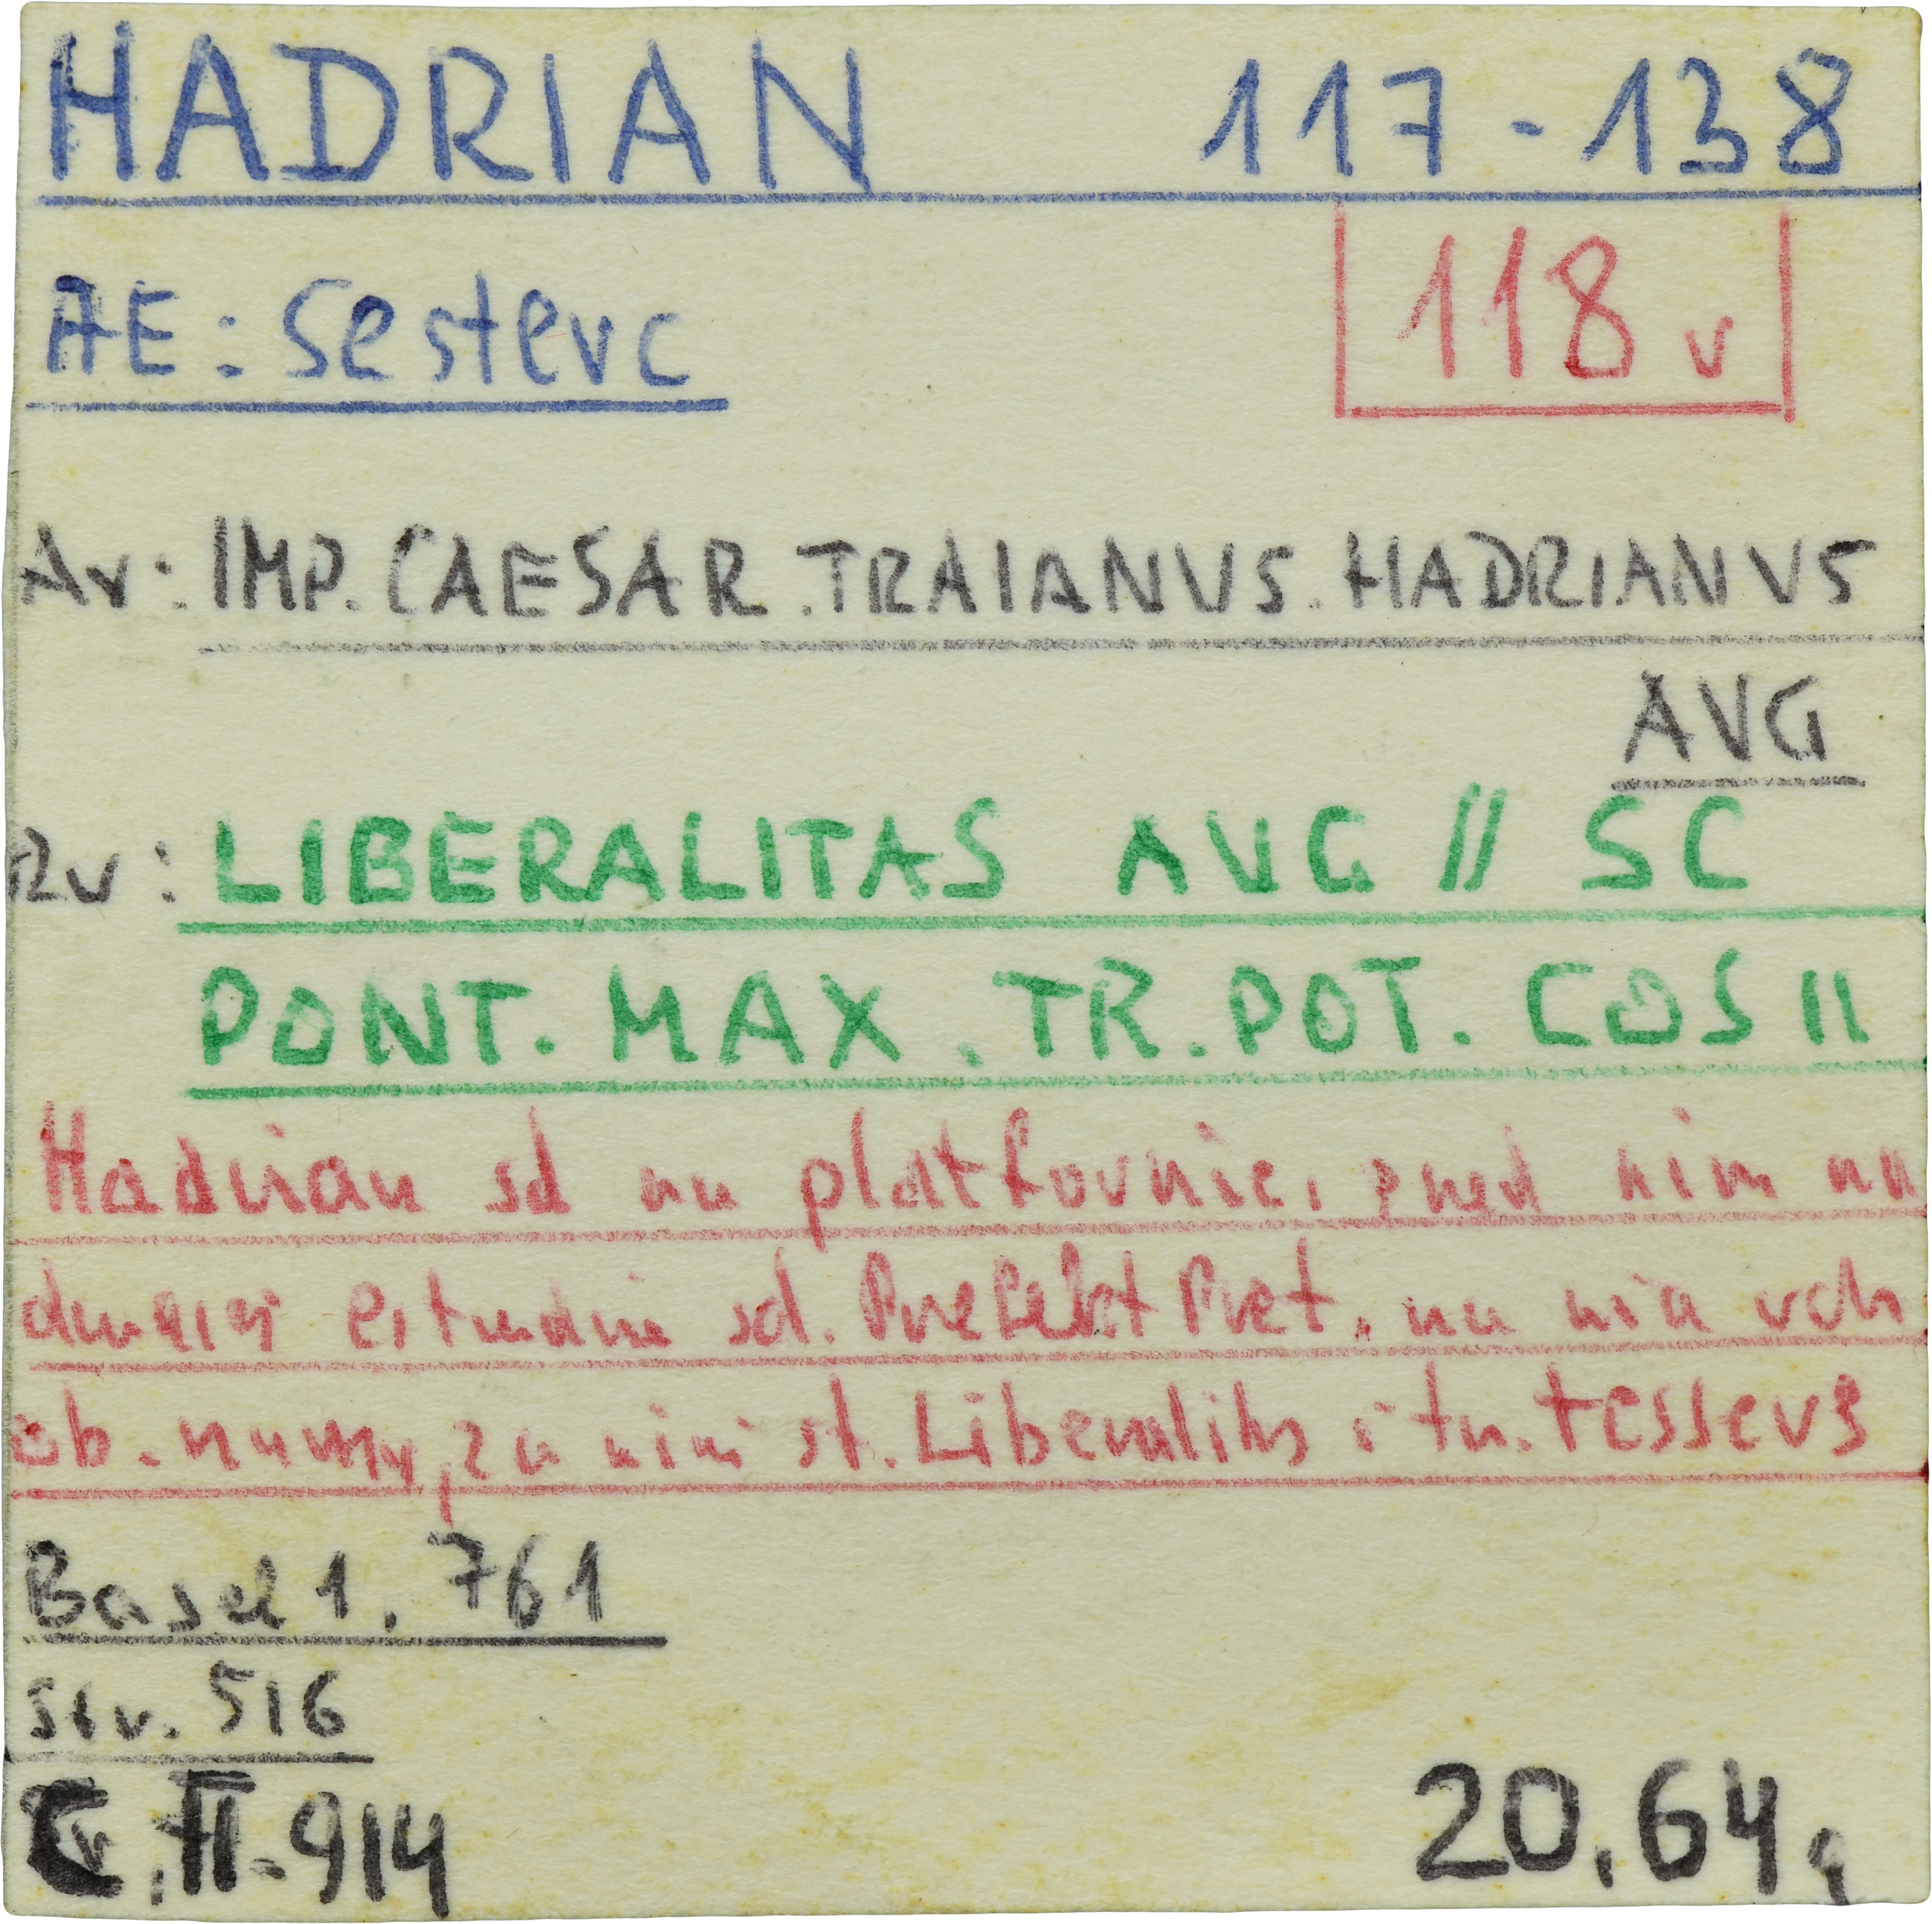 HADRIAN 117-138
AE: Sesterc
118 r
Av: IMP. CAESAR. TRAIANUS. HADRIANVS
AVG
Rv: LIBERALITAS AVG // SC
PONT. MAX. TR. POT. COS II
Hadrian sd na platformie, przed nim na
drugiej estradzie sd. Prefekt Pret. na nia wch
ob. rzymu, za nimi st. Liberalitas i trz. tessere
Basel 1. 761
Str. 516
C. II. 914
20,64 g